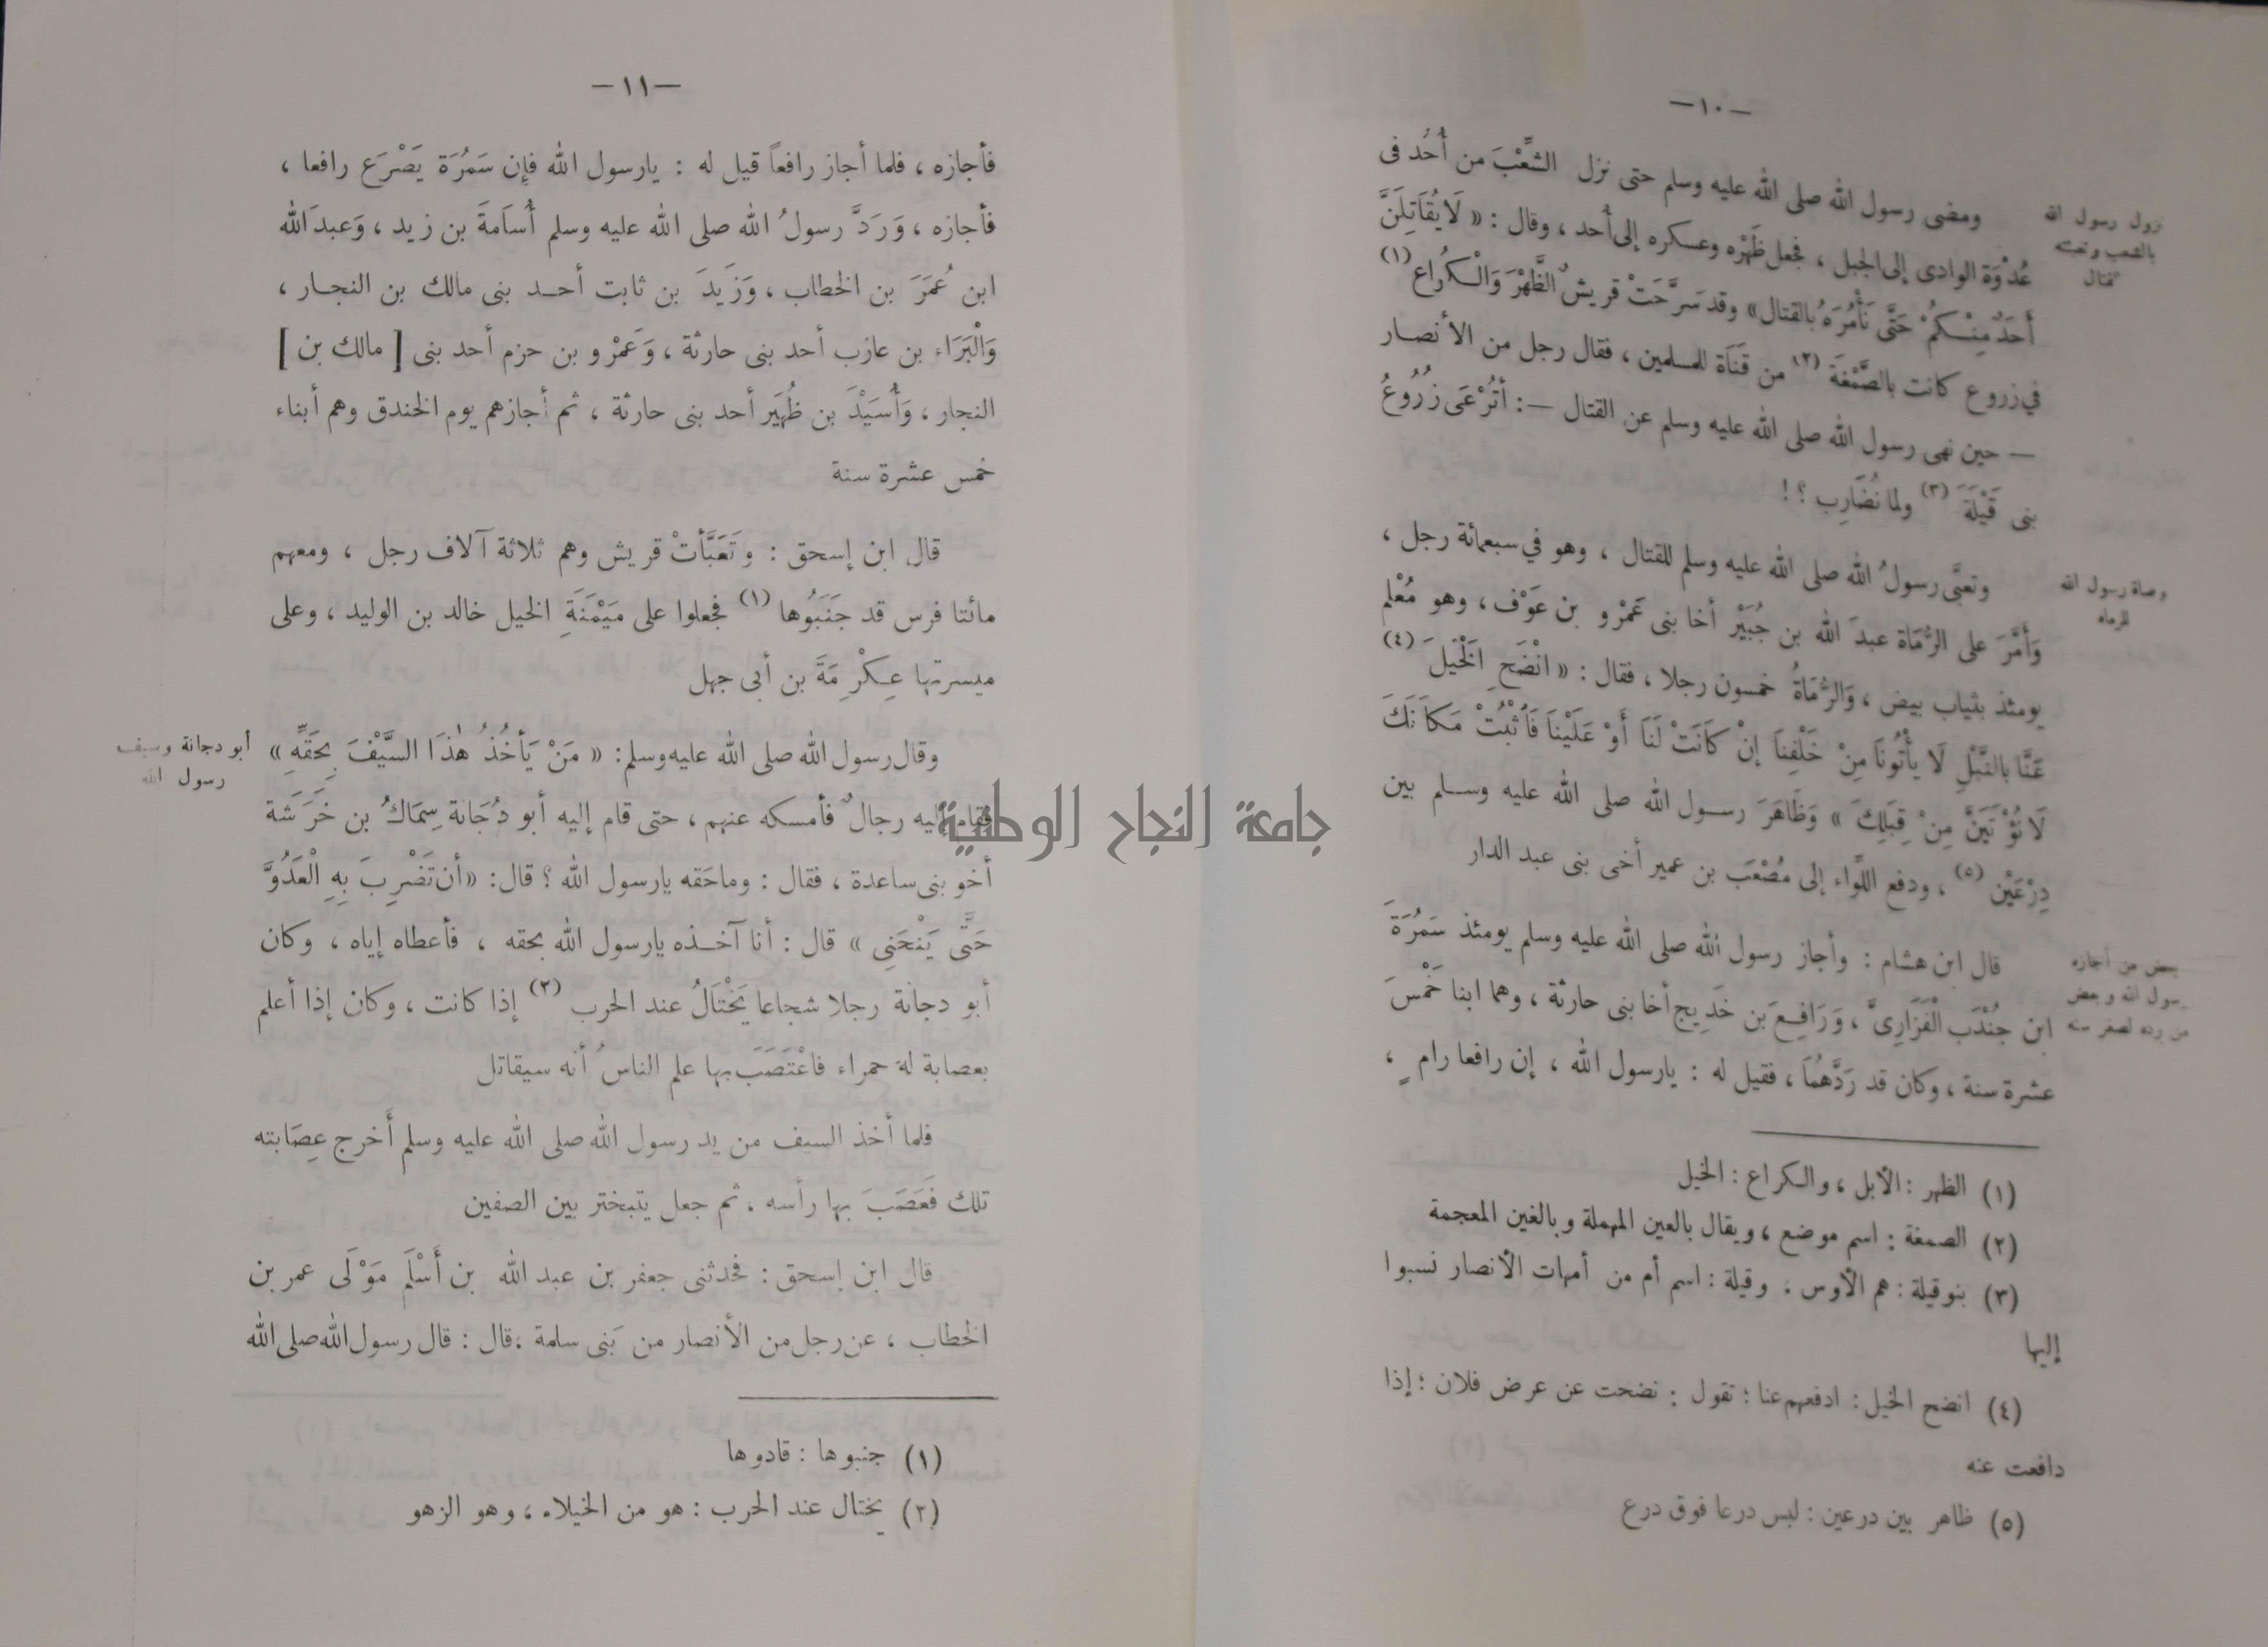 —١٠—
ومضى رسول الله صلى الله عليه وسلم حتى نزل الشِّعْبَ من أُحُد فى
عُدْوَة الوادى إلى الجبل ، فجعل ظَهْرَه وعسكره إلى أُحد ، وقال : « لَا يُقَاتِلَنَّ
أَحَدٌ مِنْكُمْ حَتَّى نَأْمُرَهُ بالقتال » وقد سَرَّحَتْ قريشٌ الظَّهْرَ وَالْكُرَاع (١)
فى زروع كانت بالصَّمْغَة (٢) من قَنَاة للمسلمين ، فقال رجل من الأنصار
— حين نهى رسول الله صلى الله عليه وسلم عن القتال — : أَتُرْعَى زُرُوعُ
بنى قَيْلَةَ (٣) ولما نُضَارِب ؟ !
وتعبَّى رسولُ الله صلى الله عليه وسلم للقتال ، وهو فى سبعمائة رجل ،
وَأَمَّرَ على الرُّمَاة عبدَ الله بن جُبَيْر أخا بنى عَمْرو بن عَوْف ، وهو مُعْلم
يومئذ بثياب بيض ، وَالرُّمَاةُ خمسون رجلا ، فقال : « انْضَحِ الْخَيْلَ (٤)
عَنَّا بالنَّبْلِ لَا يَأْتُونَا مِنْ خَلْفِنَا إنْ كَانَتْ لَنَا أَوْ عَلَيْنَا فَاثْبُتْ مَكَانَكَ
لَا نُؤْتَيَنَّ مِنْ قِبَلِكَ » وَظَاهَرَ رسول الله صلى الله عليه وسلم بين
دِرْعَيْن (٥) ، ودفع اللِّوَاء إلى مُصْعَب بن عمير أخى بنى عبد الدار
قال ابن هشام : وأجاز رسول الله صلى الله عليه وسلم يومئذ سَمُرَةَ
ابن جُنْدَب الْفَزَارِىَّ ، وَرَافِعَ بن خَدِيج أخا بنى حارثة ، وهما ابنا خَمْسَ
عشرة سنة ، وكان قد رَدَّهُمَا ، فقيل له : يارسول الله ، إن رافعا رامٍ ،
نزول رسول الله
بالشعب وتعبئته
للقتال
وصاة رسول الله
للرماه
بعض من أجازه
رسول الله وبعض
من رده لصغر سنه
(١) الظهر : الأبل ، والكراع : الخيل
(٢) الصمغة : اسم موضع ، ويقال بالعين المهملة وبالغين المعجمة
(٣) بنو قيلة : هم الأوس . وقيلة : اسم أم من أمهات الأنصار نسبوا
إليها
(٤) انضح الخيل : ادفعهم عنا ؛ تقول : نضحت عن عرض فلان ؛ إذا
دافعت عنه
(٥) ظاهر بين درعين : لبس درعا فوق درع
—١١—
فأجازه ، فلما أجاز رافعاً قيل له : يارسول الله فإن سَمُرَة يَصْرَع رافعا ،
فأجازه ، وَرَدَّ رسولُ الله صلى الله عليه وسلم أُسَامَةَ بن زيد ، وَعبدَ الله
ابن عُمَرَ بن الخطاب ، وَزَيدَ بن ثابت أحد بنى مالك بن النجار ،
وَالْبَرَاء بن عازب أحد بنى حارثة ، وَعَمْرو بن حزم أحد بنى [ مالك بن ]
النجار ، وَأُسَيْدَ بن ظُهَير أحد بنى حارثة ، ثم أجازهم يوم الخندق وهم أبناء
خمس عشرة سنة
قال ابن إسحق : وتَعَبَّأَتْ قريش وهم ثلاثة آلاف رجل ، ومعهم
مائتا فرس قد جَنَبُوها (١) فجعلوا على مَيْمَنَةِ الخيل خالد بن الوليد ، وعلى
ميسرتها عِكْرِمَةَ بن أبى جهل
وقال رسول الله صلى الله عليه وسلم : « مَنْ يَأخُذُ هٰذَا السَّيْفَ بِحَقِّهِ »
فقام إليه رجالٌ فأمسكه عنهم ، حتى قام إليه أبو دُجَانة سِمَاكُ بن خَرَشَة
أخو بنى ساعدة ، فقال : وما حَقه يارسول الله ؟ قال : « أن تَضْرِبَ بِهِ الْعَدُوَّ
حَتَّى يَنْحَنِى » قال : أنا آخذه يارسول الله بحقه ، فأعطاه إياه ، وكان
أبو دجانة رجلا شجاعا يَخْتَالُ عند الحرب (٢) إذا كانت ، وكان إذا أعلم
بعصابة له حمراء فاعْتَصَبَ بها علم الناسُ أنه سيقاتل
فلما أخذ السيف من يد رسول الله صلى الله عليه وسلم أَخرج عِصَابته
تلك فَعَصَبَ بها رأسه ، ثم جعل يتبختر بين الصفين
قال ابن إسحق : فحدثنى جعفر بن عبد الله بن أَسْلَمَ مَوْلَى عمر بن
الخطاب ، عن رجل من الأنصار من بَنى سلمة ؛ قال : قال رسول الله صلى الله
أبو دجانة وسيف
رسول الله
(١) جنبوها : قادوها
(٢) يختال عند الحرب : هو من الخيلاء ، وهو الزهو
جامعة النجاح الوطنية